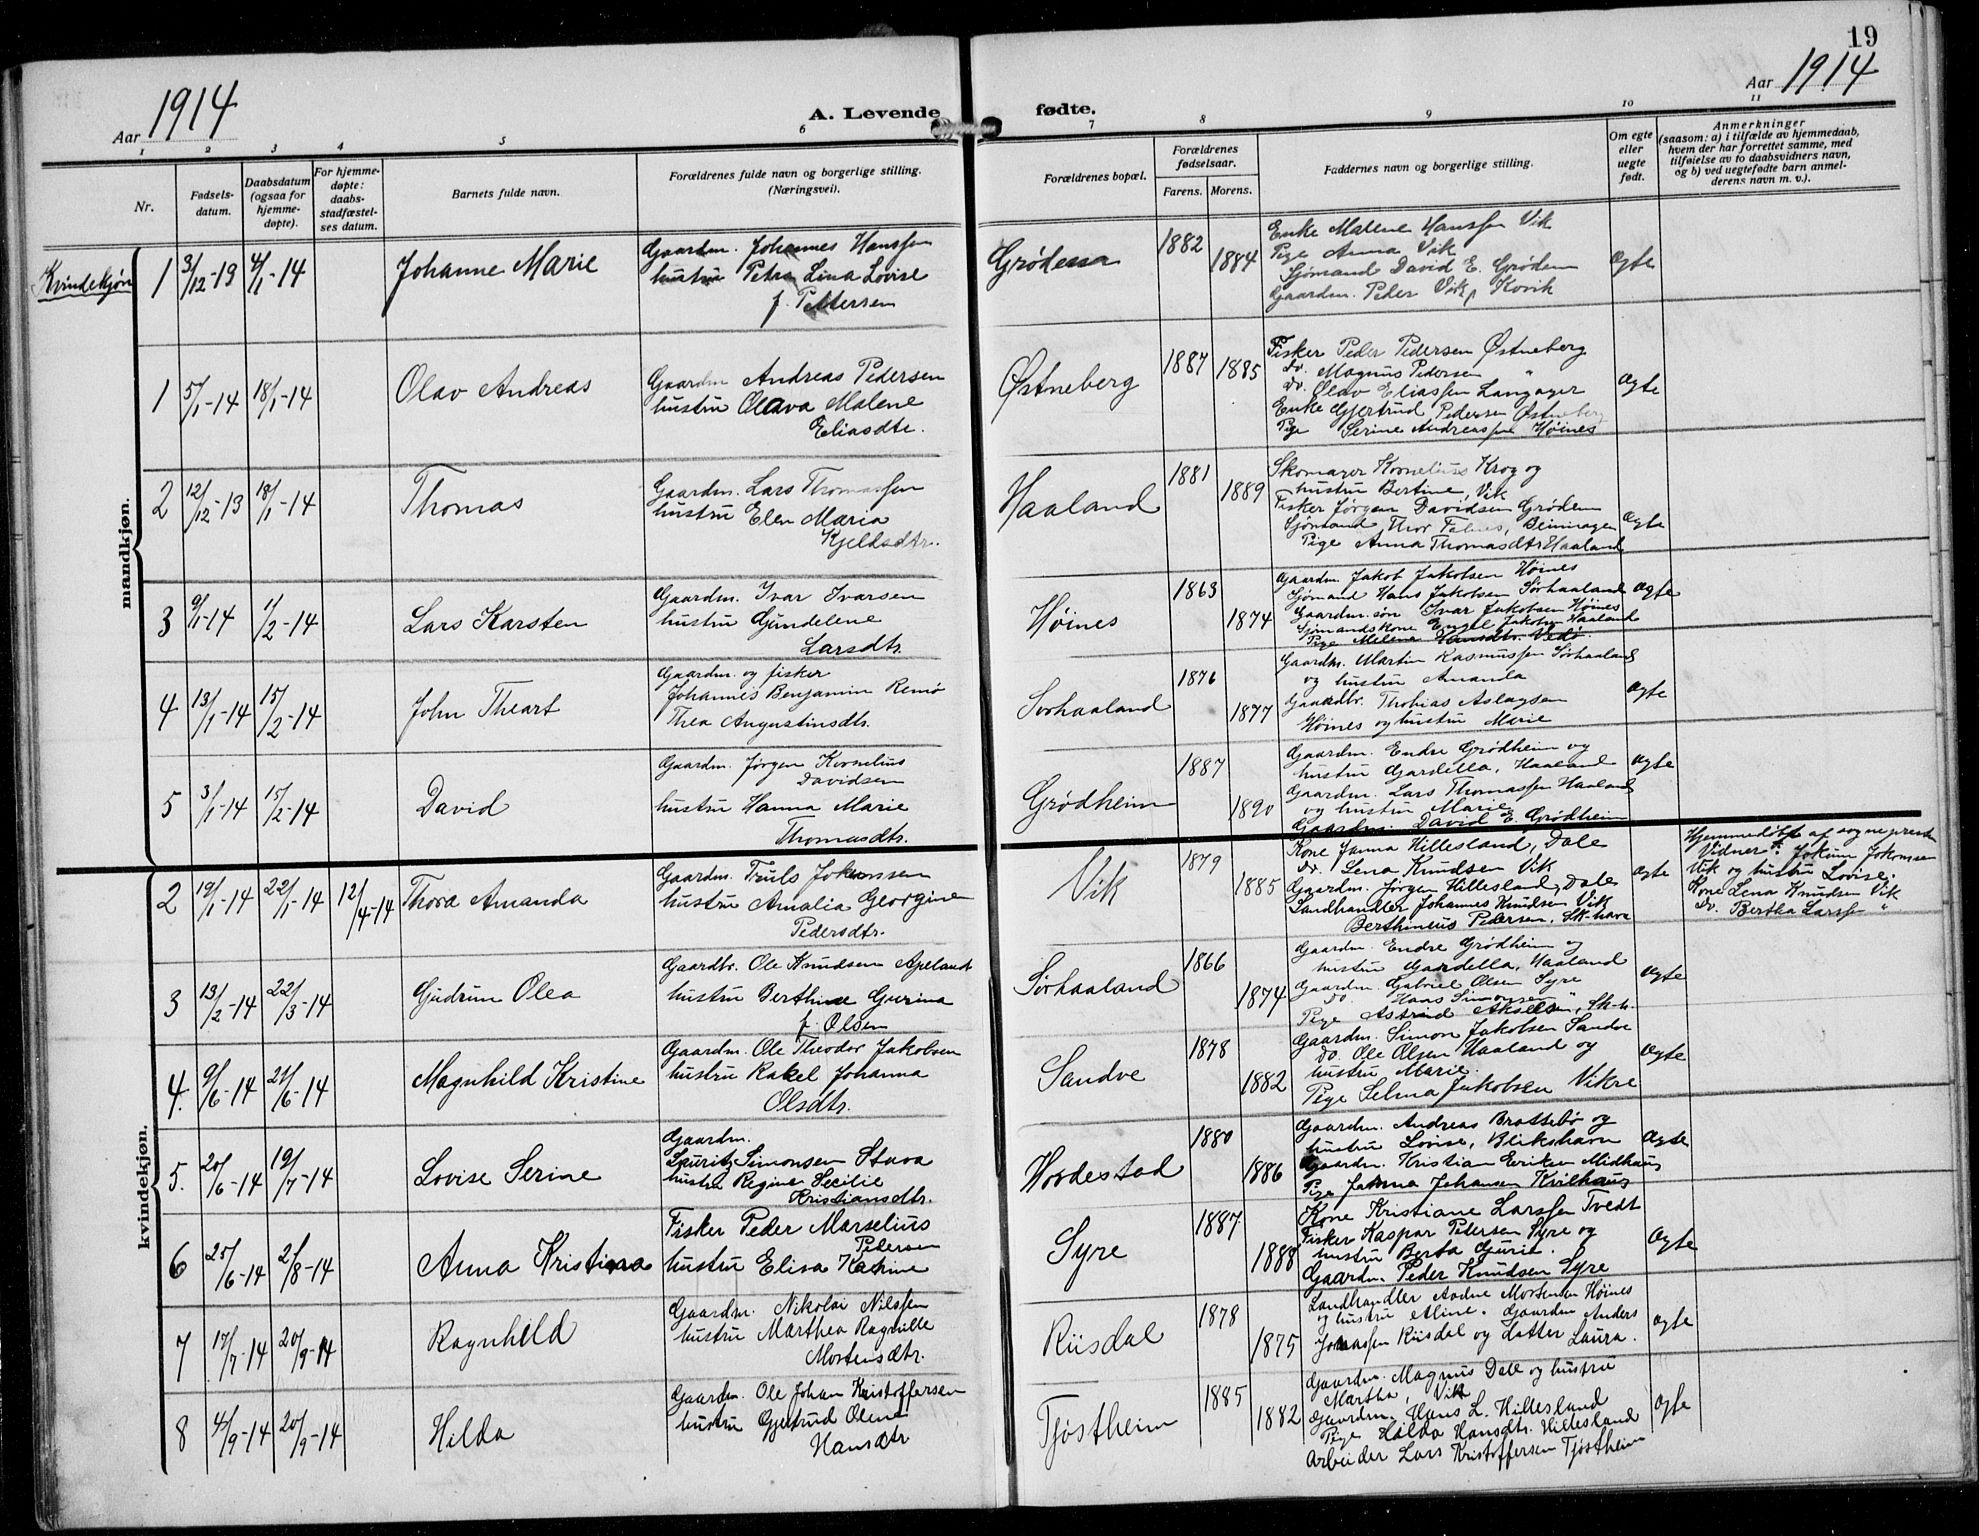 19
Aar 1914
Aar 1914
A. Levende fødte.
1 2 3 4 5 6 7 8 9 10 11
Nr.
Fødsels-
datum.
Daabsdatum
(ogsaa for
hjemme-
døpte).
For hjemme-
døpte:
daabs-
stadfæstel-
ses datum.
Barnets fulde navn.
Forældrenes fulde navn og borgerlige stilling.
(Næringsvei).
Forældrenes bopæl.
Forældrenes
fødselsaar.
Farens. Morens.
Faddernes navn og borgerlige stilling.
Om egte
eller
uegte
født.
Anmerkninger
(saasom: a) i tilfælde av hjemmedaab,
hvem der har forrettet samme, med
tilføielse av to daabsvidners navn,
og b) ved uegtefødte barn anmel-
derens navn m. v.).
Kvindekjøn
1 3/12-13 4/1-14 Johanne Marie
Gaardm. Johannes Hanssen
hustru Petra Lina Lovise
f. Pettersen
Grødem
1882 1884
Enke Malene Hanssen Vik
Pige Anna Vik
Sjømand David E. Grødem
Gaardm. Peder Vik, Kovik
Ægte
mandkjøn.
1 5/1-14 18/1-14 Olav Andreas
Gaardm Andreas Pedersen
hustru Olava Malene
Eliasdtr.
Østneberg
1887 1885
Fisker Peder Pedersen Østneberg
do. Magnus Pedersen "
do. Olav Eliassen Langager
Enke Gjertrud Pedersen Østneberg
Pige Serine Andreassen Høines
Ægte
2 12/12-13 18/1-14 Thomas
Gaardm. Lars Thomassen
hustru Elen Maria
Kjeldsdtr.
Haaland
1881 1889
Skomager Kornelius Krog og
hustru Bertine, Vik
Fisker Jørgen Davidsen Grødem
Sjømand, Thor
Pige Anna Thomasdtr Haaland
Ægte
3 9/1-14 1/2-14 Lars Karsten
Gaardm. Ivar Ivarsen
hustru Gundelene
Larsdtr.
Høines
1863 1874
Gaardm. Jakob Jakobsen Høines
Sjømand Hans Jakobsen Sørhaaland
Gaardm.søn Ivar Jakobsen Høines
Sjømandskone Engel Jakobsen Haaland
Pige Milena Hansdtr. Vedø
Ægte
4 13/1-14 15/2-14 John Theart
Gaardm. og fisker
Johannes Benjamin Remø
Thea Augustinsdtr.
Sørhaaland
1876 1877
Gaardm. Martin Rasmussen Sørhaaland
og hustru Amanda
Gaardbr. Thobias Aslagsen
Høines og hustru Marie
Ægte
5 3/1-14 15/2-14 David
Gaardm. Jørgen Kornelius
Davidsen
hustru Hanna Marie
Thomasdtr.
Grødheim
1887 1890
Gaardm. Endre Grødheim og
hustru Gardella, Haaland
Gaardm. Lars Thomassen Haaland
og hustru Marie
Gaardm. David E. Grødheim
Ægte
kvindekjøn.
2 19/1-14 22/1-14 12/4-14 Thora Amanda
Gaardm. Truls Jokumsen
hustru Amalia Georgine
Pedersdtr.
Vik
1879 1885
Kone Janna Hillesland, Dale
do. Lena Knudsen Vik
Gaardm. Jørgen Hillesland, Dale
Landhandler Johannes Knudsen Vik
Berthineus Pedersen, Sk-havn
Ægte
Hjemmedøbt af sogneprest
Vidner: Jokum Jokumsen
Vik og hustru Lovise.
Kone Lena Knudsen Vik
do. Bertha Larssen "
3 13/2-14 22/3-14 Gudrun Olea
Gaardbr. Ole Knudsen Apeland
hustru Berthine Gurina
f. Olsen
Sørhaaland
1866 1874
Gaardm. Endre Grødheim og
hustru Gardella, Haaland
Gaardm. Gabriel Olsen Syre
do. Hans Simonsen "
Pige Astrid Akselsen, Sk-h.
Ægte
4. 9/6-14 21/6-14 Magnhild Kristine
Gaardm. Ole Theodor Jakobsen
hustru Rakel Johanna
Olsdtr.
Sandve
1878 1882
Gaardm. Simon Jakobsen Sandve
do. Ole Olsen Haaland og
hustru Marie.
Pige Selma Jakobsen Vikre
Ægte
5. 20/6-14 19/7-14 Lovise Serine
Gaardm.
Lauritz Simonsen Stava
hustru Regine Secilie
Kristiansdtr.
Hordestad
1880 1886
Gaardm. Andreas Brattebø og
hustru Lovise, Blikshavn
Gaardm. Kristian Eriksen Midhaug
Pige Janna Johansen Kvilhaug
Ægte
6 25/6-14 2/8-14 Anna Kristiana
Fisker Peder Marselius
Pedersen
hustru Elisa Katrine
Syre
1887 1888
Kone Kristiane Larssen Tvedt
Fisker Kaspar Petersen Syre og
hustru Berta Gurie.
Gaardm. Peder Knudsen Syre
Ægte
7 17/7-14 20/9-14 Ragnhild
Gaardm. Nikolai Nilssen
hustru Marthea Ragnille
Mortensdtr.
Riisdal
1878 1875
Landhandler Aadne Mortensen Høines
og hustru Aline. Gaardm Anders
Jonassen Riisdal og datter Laura.
Ægte
8 4/9-14 20/9-14 Hilda
Gaardm. Ole Johan Kristoffersen
hustru Gjertrud Olena
Hansdtr
Tjøstheim
1885 1882
Gaardm. Magnus Dale og hustru
Martha, Vik
Gaardm. Hans L. Hillesland
Pige Hilda Hansdtr. Hillesland
Arbeider Lars Kristoffersen Tjøstheim
Ægte